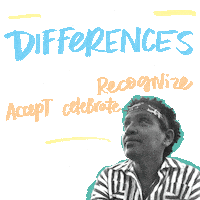 DIFFERENCES
Recognize
Accept celebrate